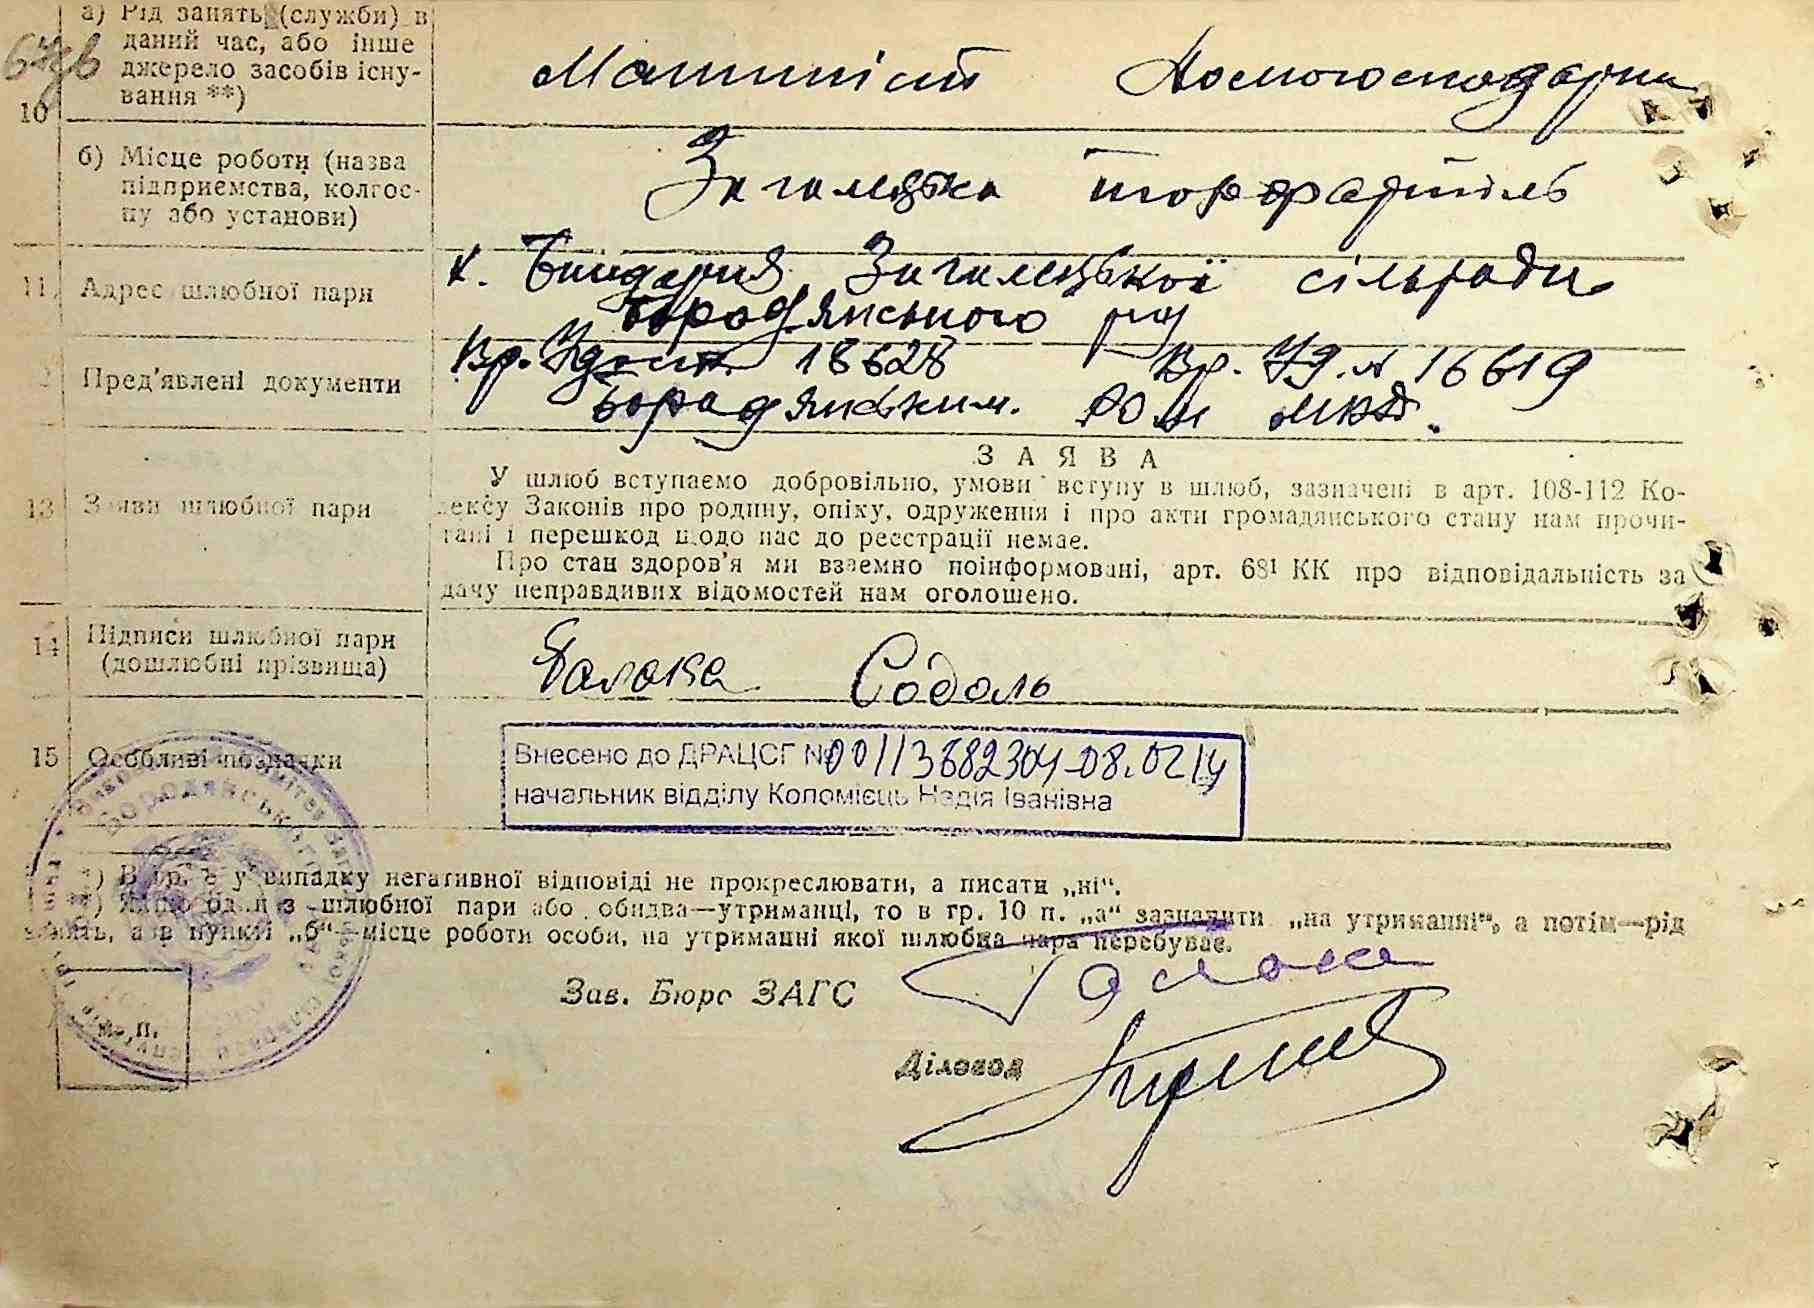 а) Рід занять (служби) в
даний час, або інше
джерело засобів існу-
вання **)
10
Машиніст Домогосподарка
б) Місце роботи (назва
підприємства, колгос-
пу або установи)
Загалецьке торфопідпіль
11 Адрес шлюбної пари
х. Бондарня Загалецької сільради
Бородянського р-ну
Пред'явлені документи
Вр. Удост 18628 Вр. Уд. № 16619
Бородянським РОМ МВД.
13 Заяви шлюбної пари
ЗАЯВА
У шлюб вступаємо добровільно, умови вступу в шлюб, зазначені в арт. 108-112 Ко-
дексу Законів про родину, опіку, одруження і про акти громадянського стану нам прочи-
тані і перешкод щодо нас до реєстрації немає.
Про стан здоров'я ми взаємно поінформовані, арт. 68¹ КК про відповідальність за
дачу неправдивих відомостей нам оголошено.
14 Підписи шлюбної пари
(дошлюбні прізвища)
Галака Соболь
15 Особливі позначки
Внесено до ДРАЦСГ № 00113682304 08.02.14
начальник відділу Коломієць Надія Іванівна
*) В гр. 5 у випадку негативної відповіді не прокреслювати, а писати „ні“.
**) Якщо один з шлюбної пари або обидва—утриманці, то в гр. 10 п. „а“ зазначити „на утриманні“, а потім—рід
занять, а в пункті „б“—місце роботи особи, на утриманні якої шлюбна пара перебуває.
Зав. Бюро ЗАГС
М. П.
Діловод